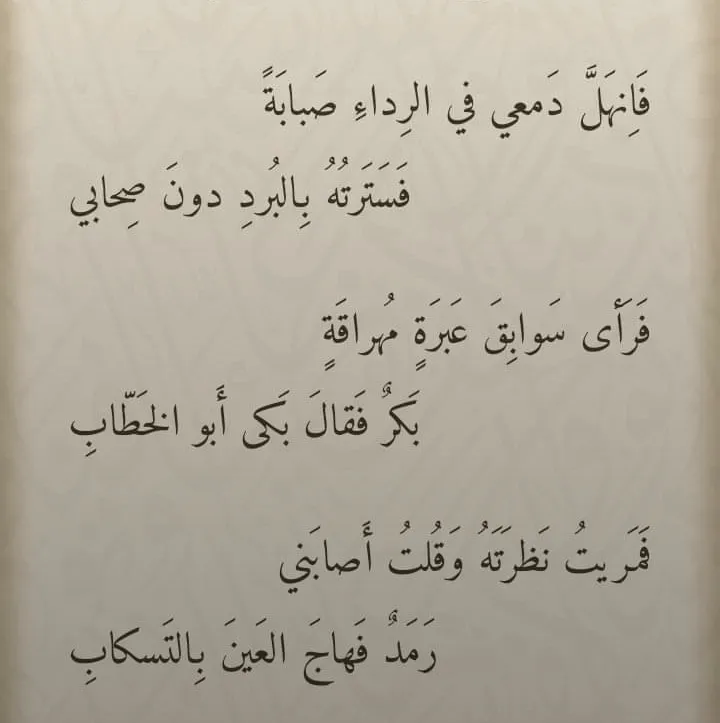 فَاِنهَلَّ دَمعي في الرِداءِ صَبابَةً
فَسَتَرتُهُ بِالبُردِ دونَ صِحابي
فَرَأى سَوابِقَ عَبرَةٍ مُهراقَةٍ
بَكرٌ فَقالَ بَكى أَبو الخَطّابِ
فَمَريتُ نَظرَتَهُ وَقُلتُ أَصابَني
رَمَدٌ فَهاجَ العَينَ بِالتَسكابِ